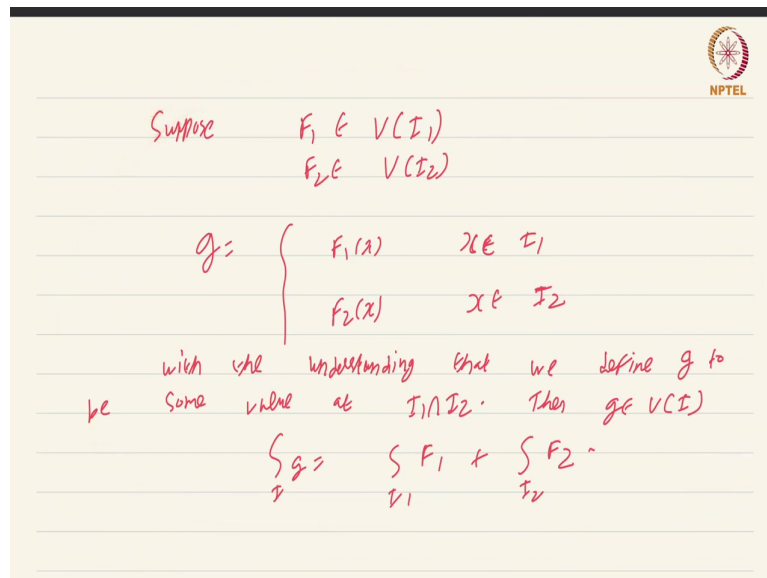 NPTEL
Suppose F₁ ∈ V(I₁)
F₂ ∈ V(I₂)
g = { F₁(x) x ∈ I₁
F₂(x) x ∈ I₂
with the understanding that we define g to
be some value at I₁∩I₂. Then g ∈ V(I)
∫_I g = ∫_{I₁} F₁ + ∫_{I₂} F₂.